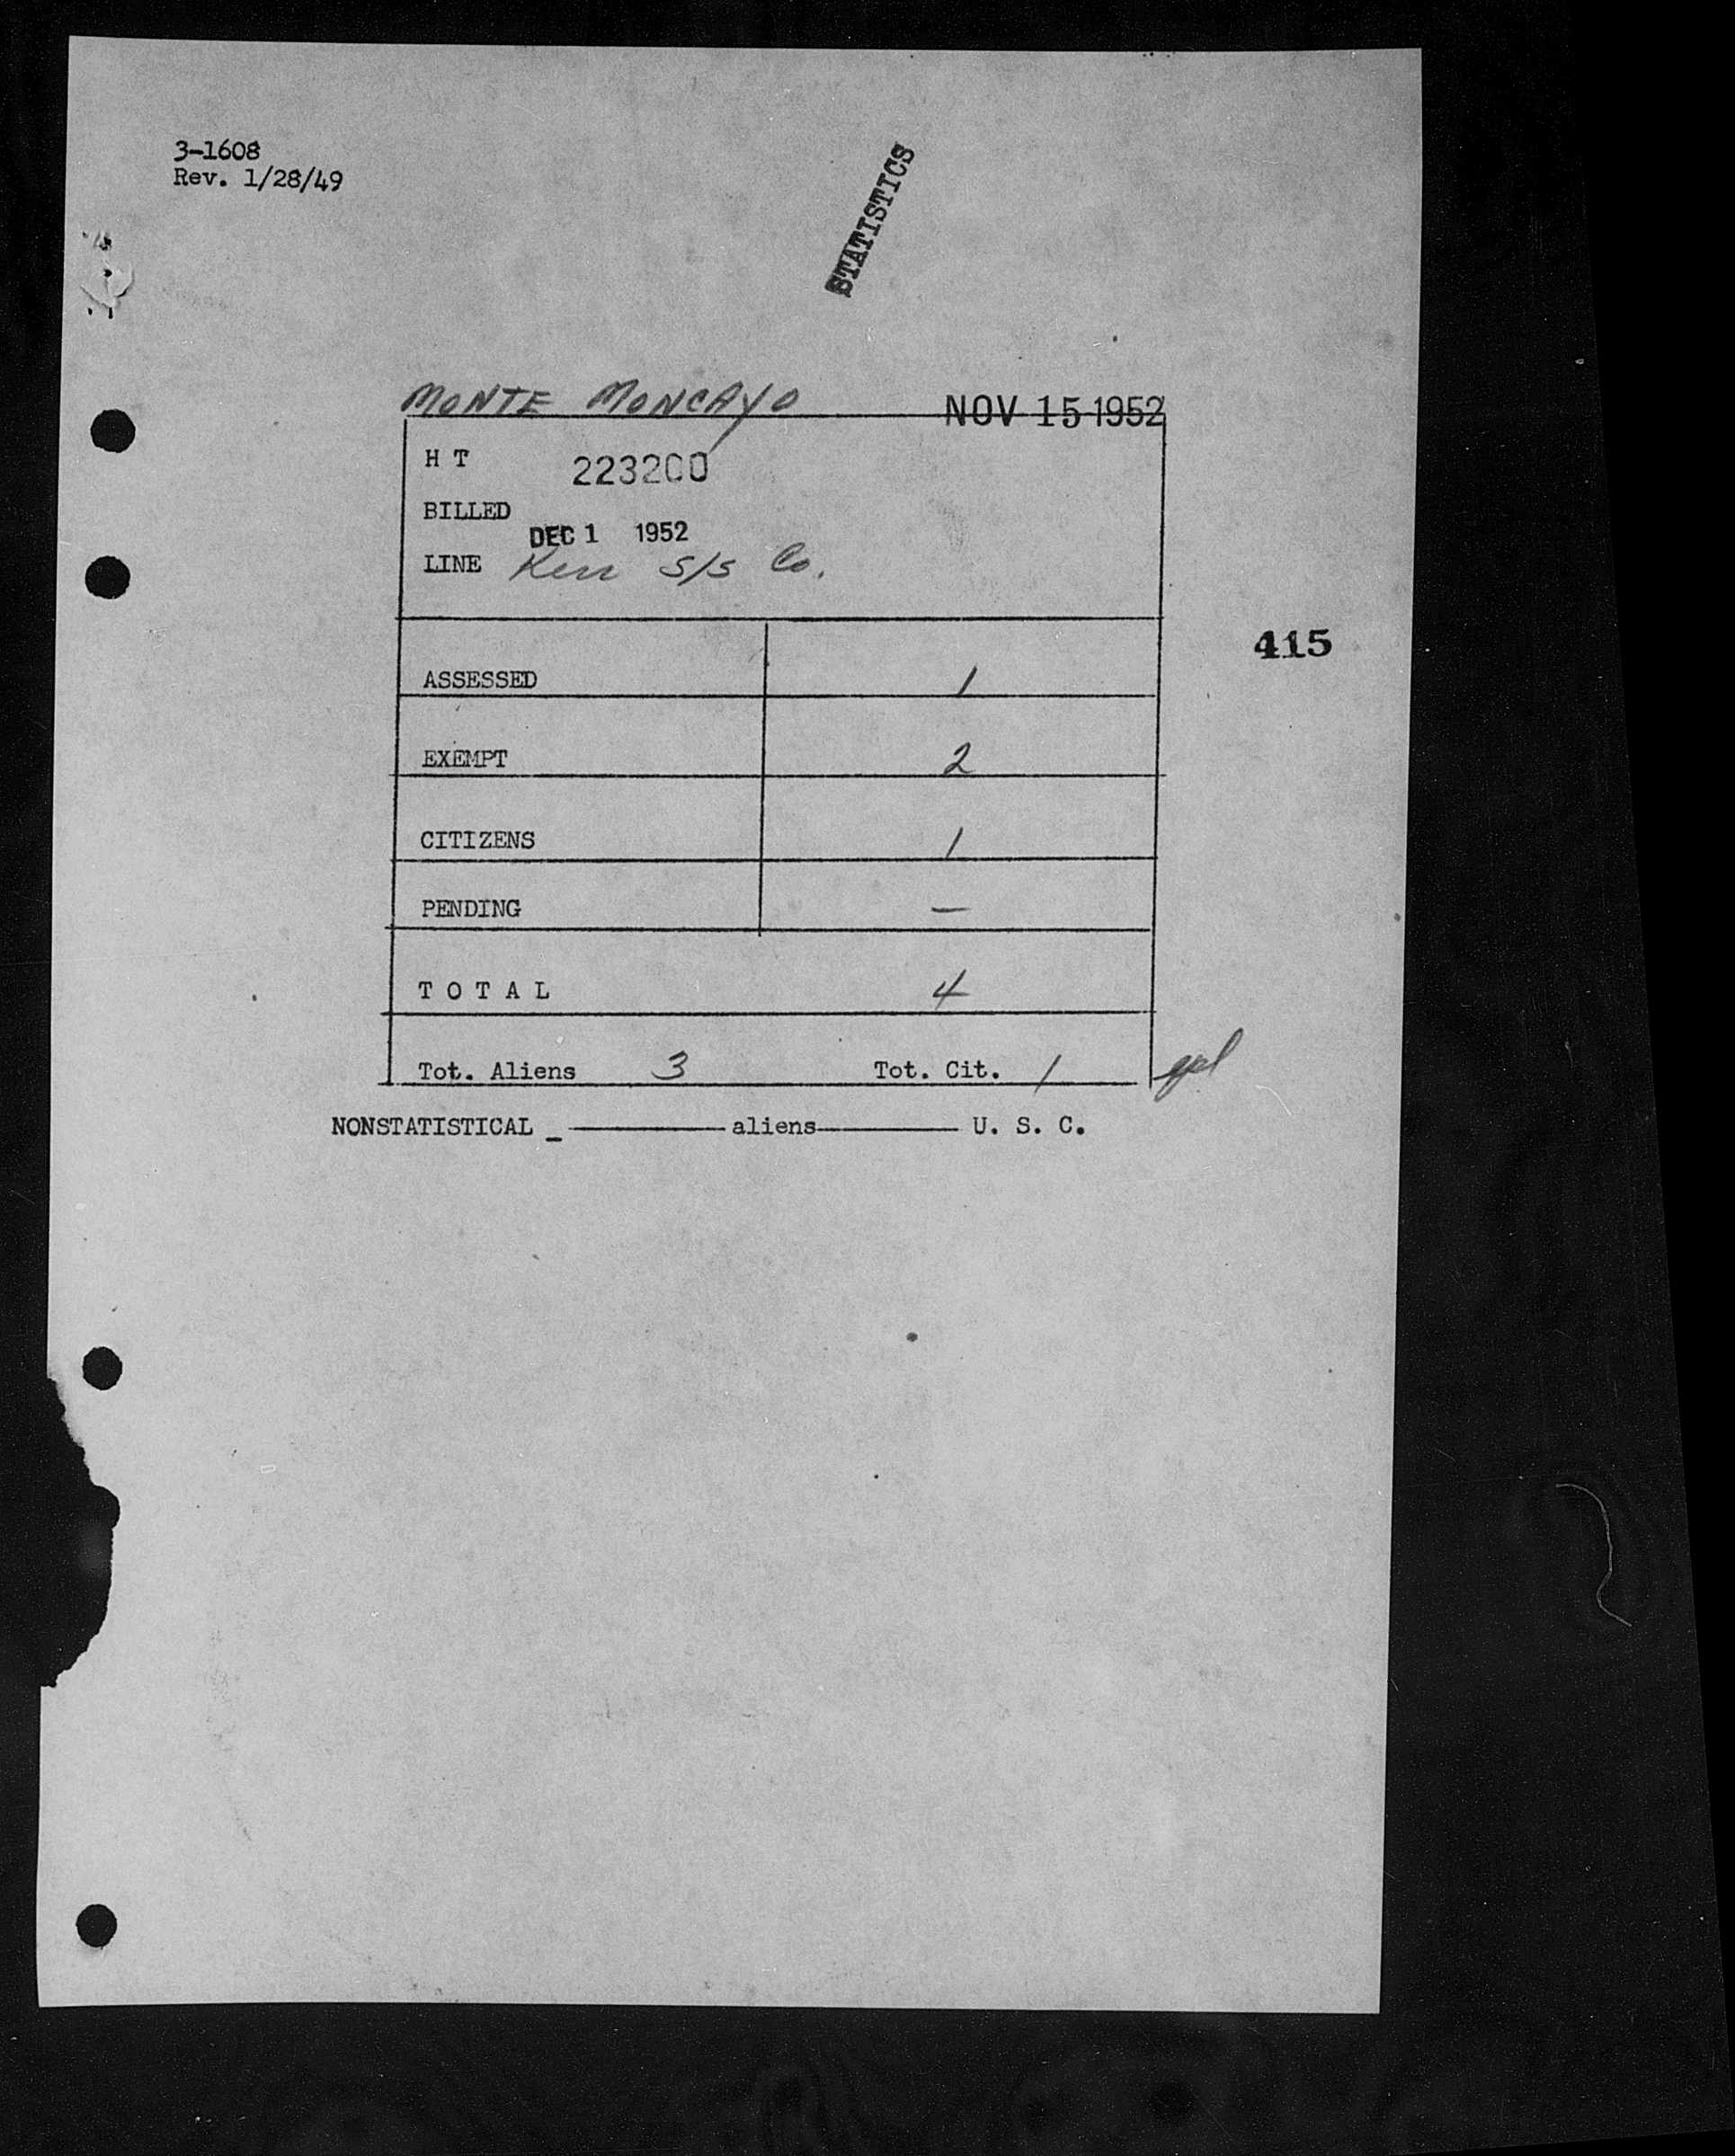 3-1608
Rev. 1/28/49
STATISTICS
MONTE MONCAYO NOV 15 1952
H T 223200
BILLED
DEC 1 1952
LINE Kerr S/S Co.
415
ASSESSED 1
EXEMPT 2
CITIZENS 1
PENDING —
T O T A L 4
Tot. Aliens 3 Tot. Cit. 1
NONSTATISTICAL _ ———— aliens———— U. S. C.